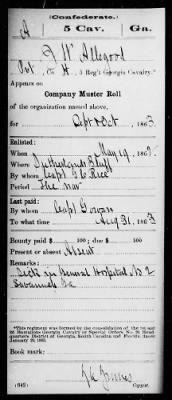 (Confederate.)
A 5 Cav. Ga.
J W Allegood
Pvt, Co. H, 5 Reg't Georgia Cavalry.*
Appears on
Company Muster Roll
of the organization named above,
for Sept & Oct, 1863.
Enlisted:
When May 19, 186
Where Sutherlands Bluff
By whom Capt
Period The war
Last paid:
By whom Capt
To what time Aug 31, 1863
Bounty paid $ 100; due $ 100
Present or absent Absent
Remarks:
Sick in General Hospital No 2
Savannah Ga
*This regiment was formed by the consolidation of the 1st and 2d Battalions Georgia Cavalry
January 20, 1863.
Book mark:
(642) Copyist.